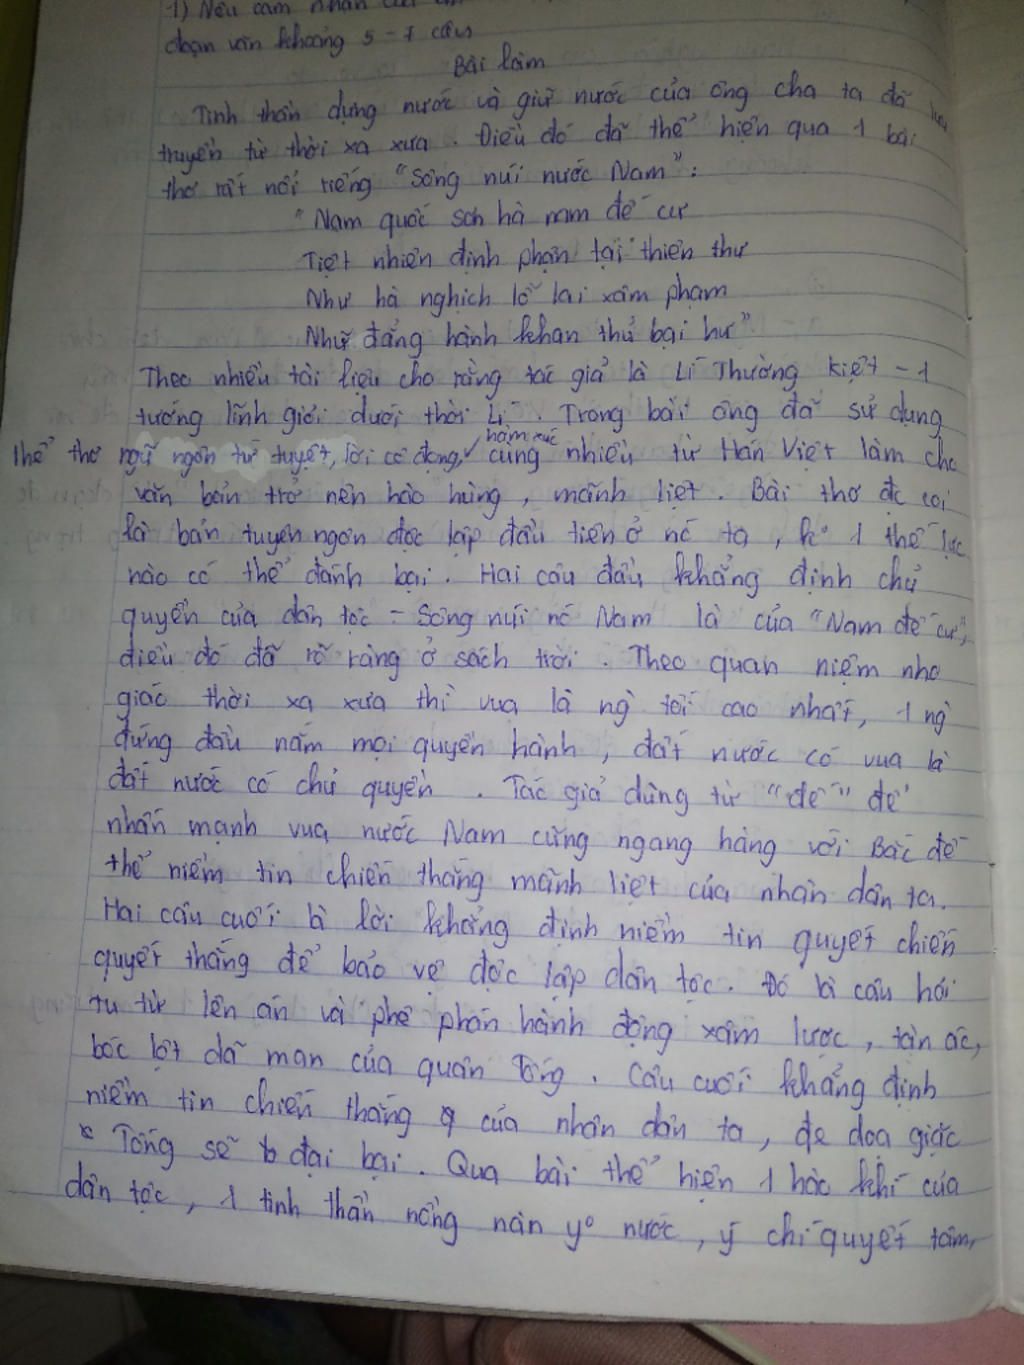 1) Nêu cảm nhận của
đoạn văn khoảng 5 - 7 câu
Bài làm
Tinh thần dựng nước và giữ nước của ông cha ta đã lưu
truyền từ thời xa xưa. Điều đó đã thể hiện qua 1 bài
thơ rất nổi tiếng "Sông núi nước Nam":
"Nam quốc sơn hà nam đế cư
Tiệt nhiên định phận tại thiên thư
Như hà nghịch lỗ lai xâm phạm
Nhữ đẳng hành khan thủ bại hư"
Theo nhiều tài liệu cho rằng tác giả là Lí Thường Kiệt - 1
tướng lĩnh giỏi dưới thời Lí. Trong bài ông đã sử dụng
thể thơ ngũ ngôn tứ tuyệt, lời cô đọng, hàm xúc cùng nhiều từ Hán Việt làm cho
văn bản trở nên hào hùng, mãnh liệt. Bài thơ đc coi
là bản tuyên ngôn độc lập đầu tiên ở nc ta, k° 1 thế lực
nào có thể đánh bại. Hai câu đầu khẳng định chủ
quyền của dân tộc - Sông núi nc Nam là của "Nam đế cư",
điều đó đã rõ ràng ở sách trời. Theo quan niệm nho
giáo thời xa xưa thì vua là ng tối cao nhất, 1 ng
đứng đầu nắm mọi quyền hành, đất nước có vua là
đất nước có chủ quyền. Tác giả dùng từ "đế" để
nhấn mạnh vua nước Nam cũng ngang hàng với Bắc đế
thể niềm tin chiến thắng mãnh liệt của nhân dân ta.
Hai câu cuối là lời khẳng định niềm tin quyết chiến
quyết thắng để bảo vệ độc lập dân tộc. Đó là câu hỏi
tu từ lên án và phê phán hành động xâm lược, tàn ác,
bóc lột dã man của quân Tống. Câu cuối khẳng định
niềm tin chiến thắng của nhân dân ta, đe dọa giặc
Tống sẽ b đại bại. Qua bài thể hiện 1 hào khí của
dân tộc, 1 tinh thần nồng nàn y° nước, ý chí quyết tâm,